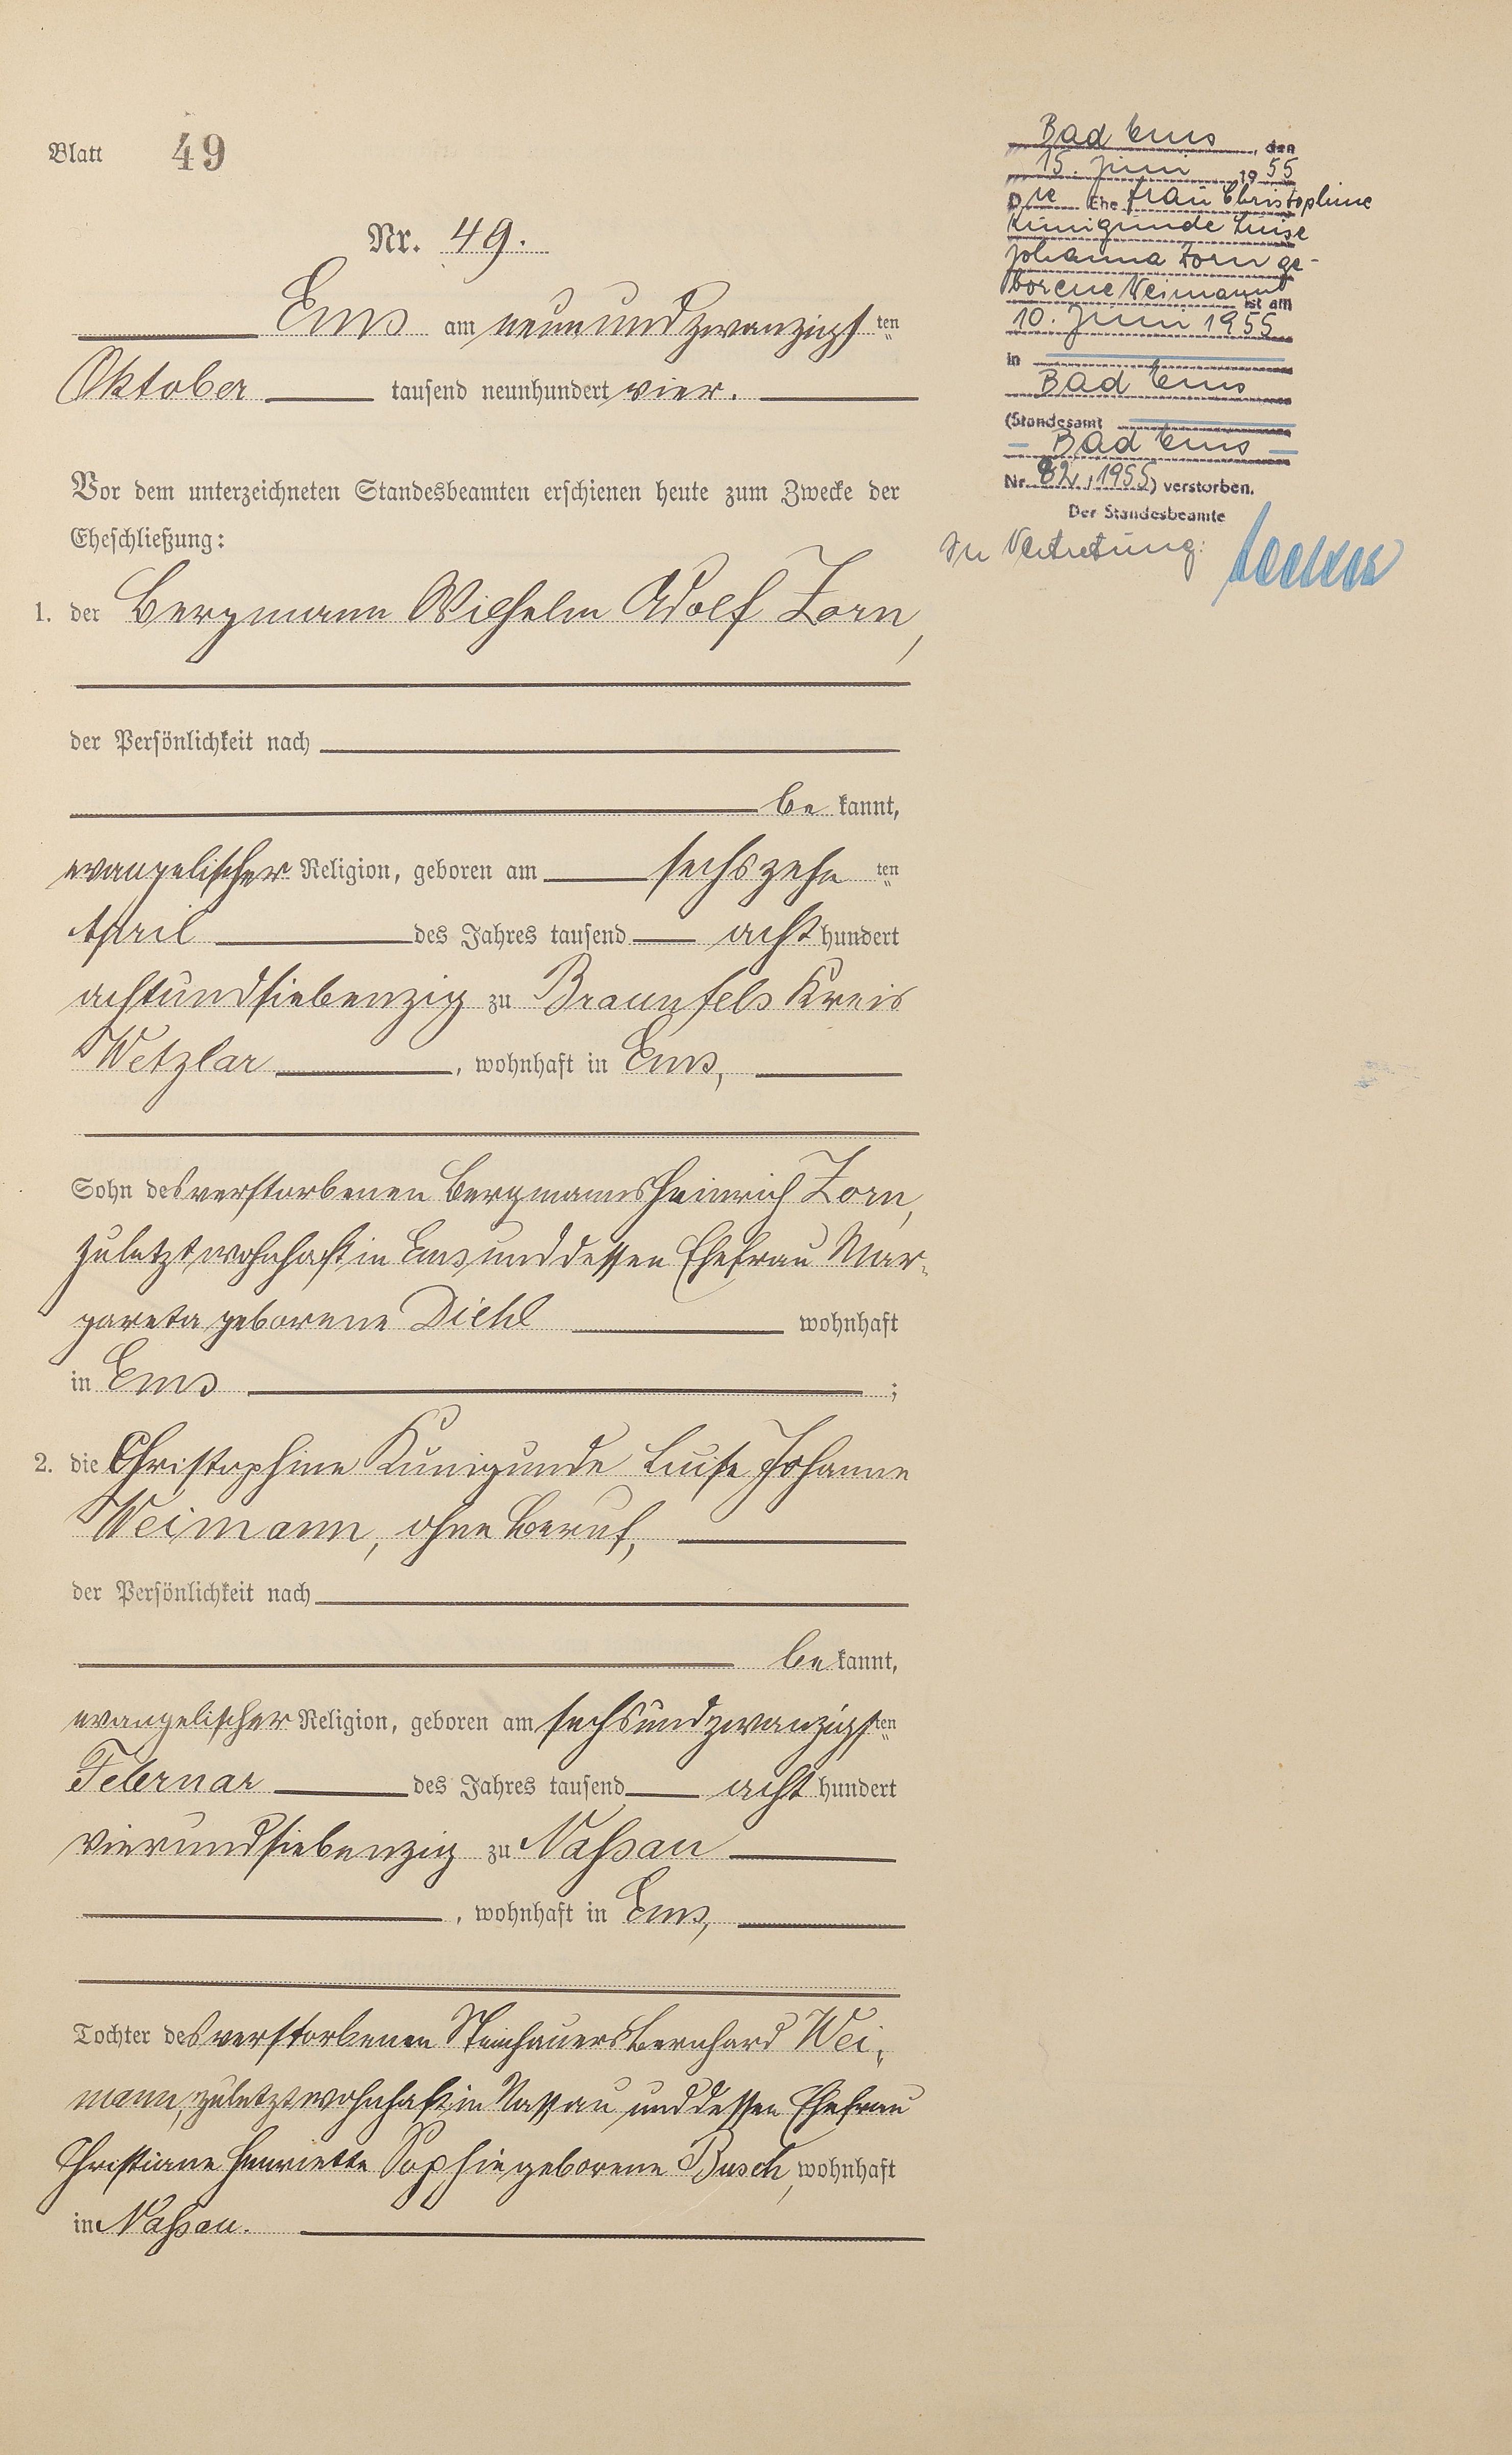 Blatt 49
Nr. 49.
Ems am neunundzwanzigsten
Oktober tausend neunhundert vier.
Vor dem unterzeichneten Standesbeamten erschienen heute zum Zwecke der
Eheschließung:
1. der Bergmann Wilhelm Adolf Zorn,
der Persönlichkeit nach
be kannt,
evangelischer Religion, geboren am sechszehnten
April des Jahres tausend acht hundert
achtundsiebenzig zu Braunfels Kreis
Wetzlar, wohnhaft in Ems,
Sohn des verstorbenen Bergmanns Heinrich Zorn,
zuletzt wohnhaft in Ems, und dessen Ehefrau Mar-
gareta geborene Diehl wohnhaft
in Ems ;
2. die Christophine Kunigunde Luise Johanne
Weimann, ohne Beruf,
der Persönlichkeit nach
be kannt,
evangelischer Religion, geboren am sechsundzwanzigsten
Februar des Jahres tausend acht hundert
vierundsiebenzig zu Nassau
, wohnhaft in Ems,
Tochter des verstorbenen Steinhauers Bernhard Wei-
mann, zuletzt wohnhaft in Nassau und dessen Ehefrau
Christiane Henriette Sophie geborene Busch, wohnhaft
in Nassau.
Bad Ems, den
15. Juni 1955
Die Ehefrau Christophine
Kunigunde Luise
Johanna Zorn ge-
borene Weimann ist am
10. Juni 1955
in
Bad Ems
(Standesamt
Bad Ems
Nr. 82, 1955) verstorben.
Der Standesbeamte
In Vertretung: